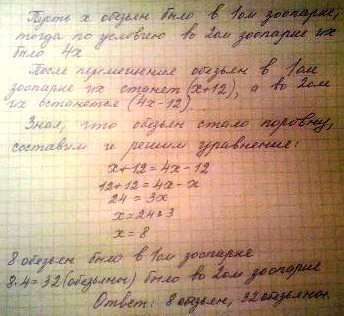 Пусть x обезьян было в 1ом зоопарке,
тогда по условию во 2ом зоопарке их
было 4x
После перемещение обезьян в 1ом
зоопарке их станет (x+12), а во 2ом
их останется (4x-12)
Зная, что обезьян стало поровну,
составим и решим уравнение:
x+12=4x-12
12+12=4x-x
24=3x
x=24:3
x=8
8 обезьян было в 1ом зоопарке
8·4=32 (обезьяны) было во 2ом зоопарке
Ответ: 8 обезьян, 32 обезьяны.